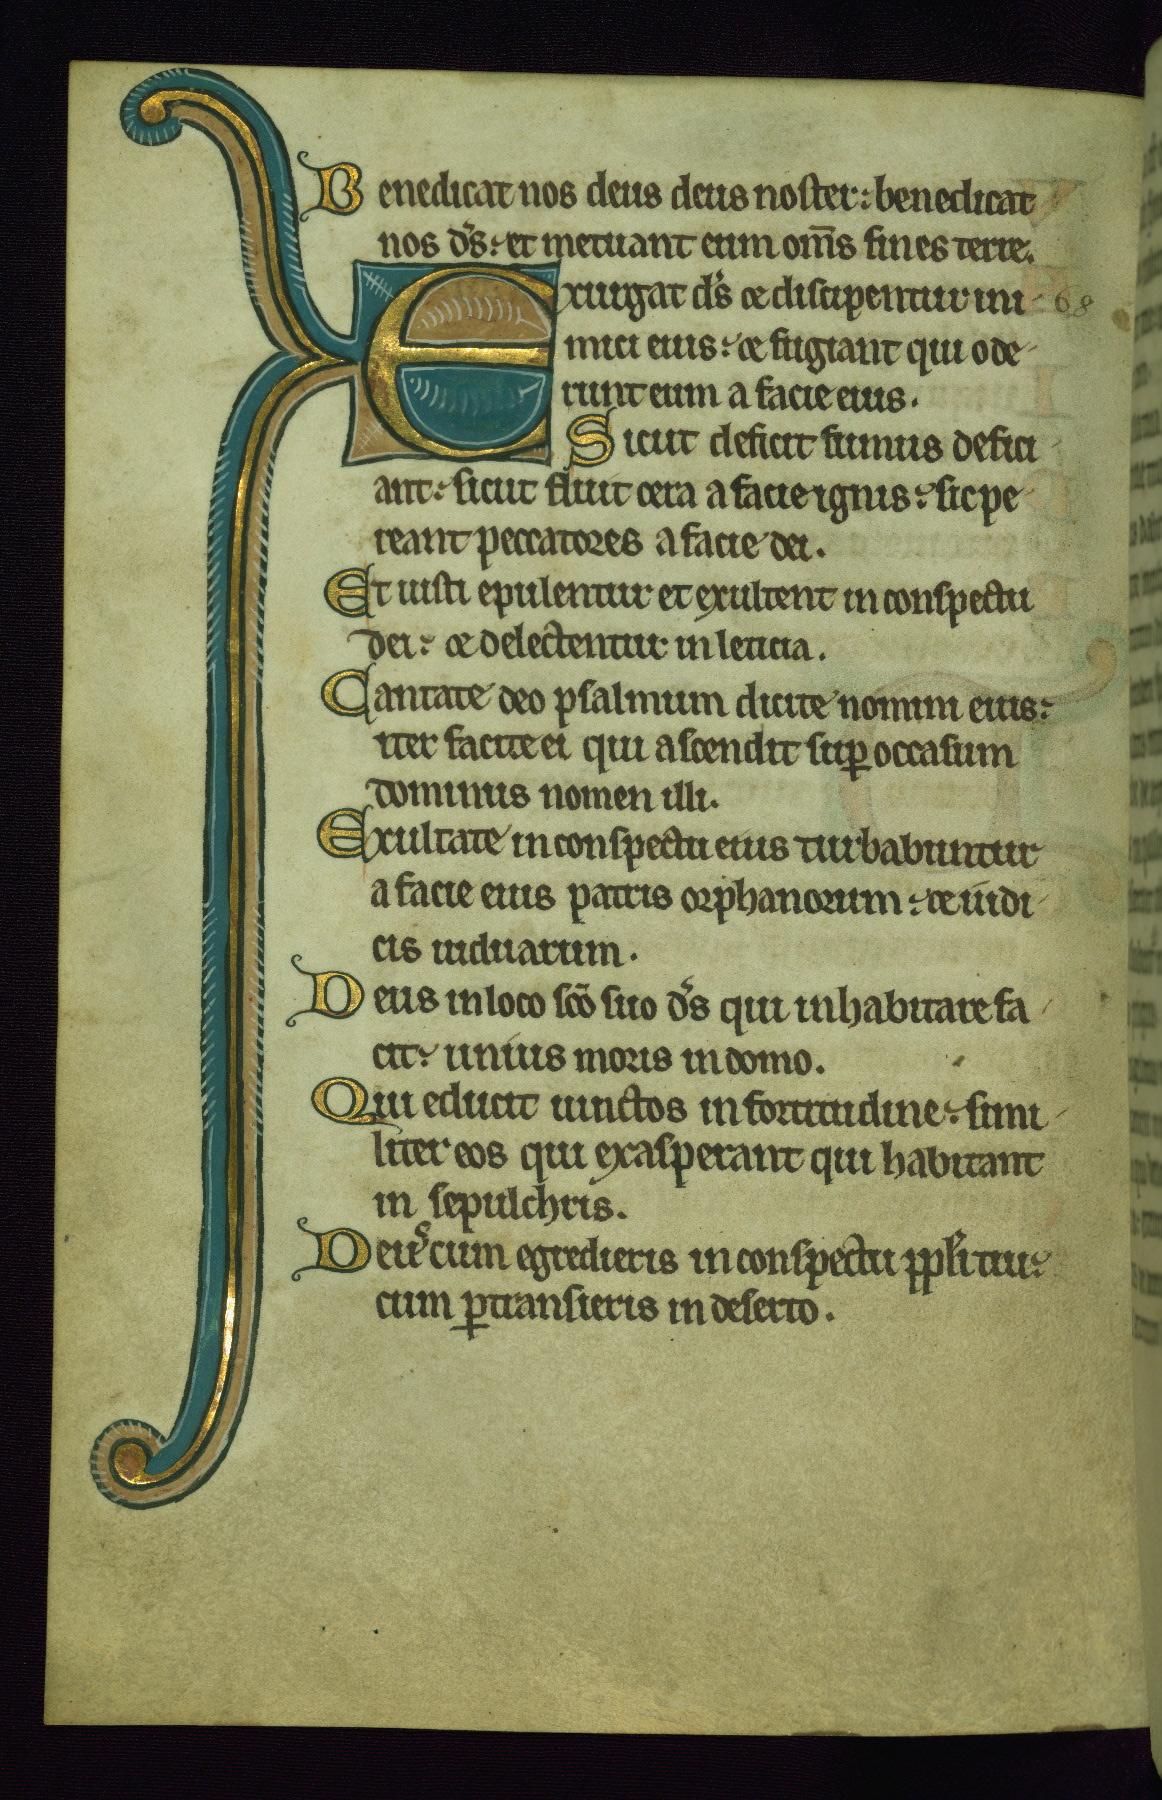 Benedicat nos deus deus noster: benedicat
nos ds: et metuant eum oms fines terre.
Exurgat ds et dissipentur ini 68
mici eius: et fugiant qui ode
runt eum a facie eius.
Sicut deficit fumus defici
ant: sicut fluit cera a facie ignis: sic pe
reant peccatores a facie dei.
Et iusti epulentur et exultent in conspectu
dei: et delectentur in leticia.
Cantate deo psalmum dicite nomini eius:
iter facite ei qui ascendit sup occasum
dominus nomen illi.
Exultate in conspectu eius turbabuntur
a facie eius patris orphanorum: et iudi
cis uiduarum.
Deus in loco sco suo ds qui inhabitare fa
cit: unius moris in domo.
Qui educit uinctos in fortitudine: simi
liter eos qui exasperant qui habitant
in sepulchris.
Deus cum egredieris in conspectu ppli tui:
cum ptransieris in deserto.